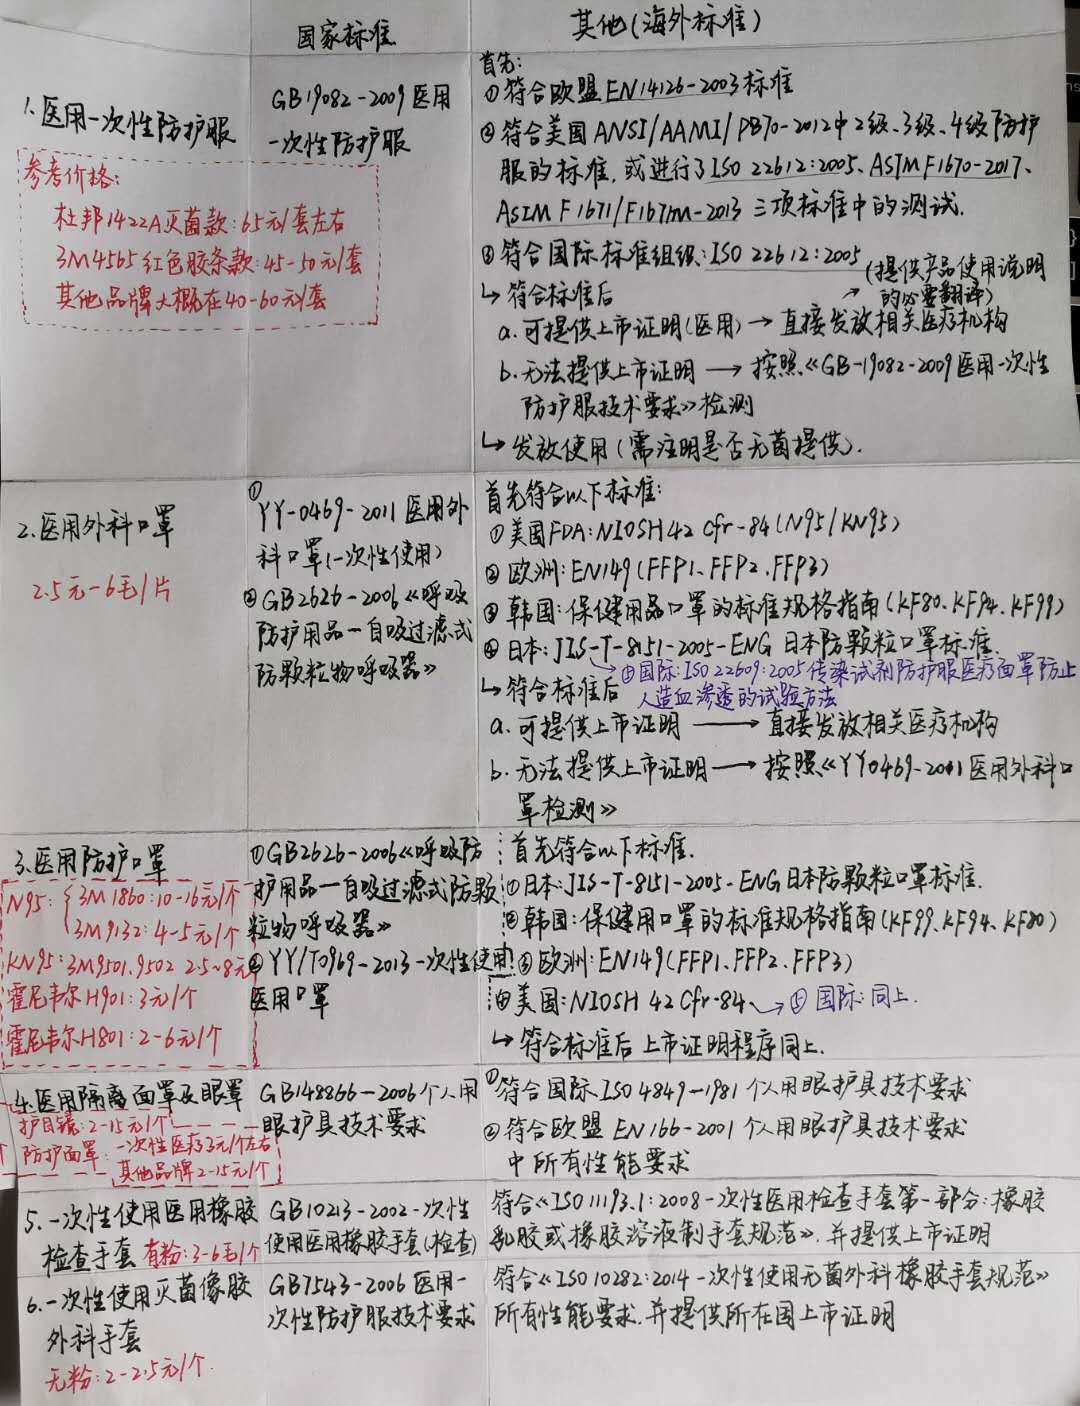 国家标准
其他(海外标准)
1.医用一次性防护服
参考价格:
杜邦1422A灭菌款:65元/套左右
3M4565红色胶条款:45-50元/套
其他品牌大概在40-60元/套
GB19082-2009医用
一次性防护服
首先:
①符合欧盟EN14126-2003标准
②符合美国ANSI/AAMI/PB70-2012中2级、3级、4级防护
服的标准,或进行了ISO 22612:2005、ASTM F1670-2017、
ASTM F1671/F1671M-2013 三项标准中的测试.
③符合国际标准组织:ISO 22612:2005
(提供产品使用说明
的必要翻译)
↳符合标准后
a.可提供上市证明(医用)→直接发放相关医疗机构
b.无法提供上市证明→按照《GB-19082-2009医用一次性
防护服技术要求》检测
↳发放使用(需注明是否无菌提供).
2.医用外科口罩
2.5元-6毛/片
①YY-0469-2011医用外
科口罩(一次性使用)
②GB2626-2006《呼吸
防护用品一自吸过滤式
防颗粒物呼吸器》
首先符合以下标准:
①美国FDA:NIOSH42 Cfr-84(N95/KN95)
②欧洲:EN149(FFP1、FFP2、FFP3)
③韩国:保健用品口罩的标准规格指南(KF80、KF94、KF99)
④日本:JIS-T-8151-2005-ENG 日本防颗粒口罩标准.
⑤国际:ISO22609:2005传染试剂防护服医疗面罩防止
人造血渗透的试验方法
↳符合标准后
a.可提供上市证明→直接发放相关医疗机构
b.无法提供上市证明→按照《YY0469-2011医用外科口
罩检测》
3.医用防护口罩
N95:{3M1860:10-16元/个
3M9132:4-5元/个
KN95:3M9501、9502 2.5~8元
霍尼韦尔H901:3元/个
霍尼韦尔H801:2-6元/个
①GB2626-2006《呼吸防
护用品一自吸过滤式防颗
粒物呼吸器》
②YY/T0969-2013一次性使用
医用口罩
首先符合以下标准.
①日本:JIS-T-8151-2005-ENG日本防颗粒口罩标准.
②韩国:保健用口罩的标准规格指南(KF99、KF94、KF80)
③欧洲:EN149(FFP1、FFP2、FFP3)
④美国:NIOSH 42 Cfr-84
⑤国际:同上.
↳符合标准后上市证明程序同上.
4.医用隔离面罩及眼罩
护目镜:2-15元/个
防护面罩:一次性医疗3元/个左右
其他品牌2-15元/个
GB148866-2006个人用
眼护具技术要求
①符合国际ISO4849-1981个人用眼护具技术要求
②符合欧盟EN166-2001个人用眼护具技术要求
中所有性能要求
5.一次性使用医用橡胶
检查手套 有粉:3-6毛/个
GB10213-2002一次性
使用医用橡胶手套(检查)
符合《ISO11193.1:2008一次性医用检查手套第一部分:橡胶
乳胶或橡胶溶液制手套规范》,并提供上市证明
6.一次性使用灭菌橡胶
外科手套
无粉:2-2.5元/个.
GB7543-2006医用一
次性防护服技术要求
符合《ISO10282:2014一次性使用无菌外科橡胶手套规范》
所有性能要求,并提供所在国上市证明